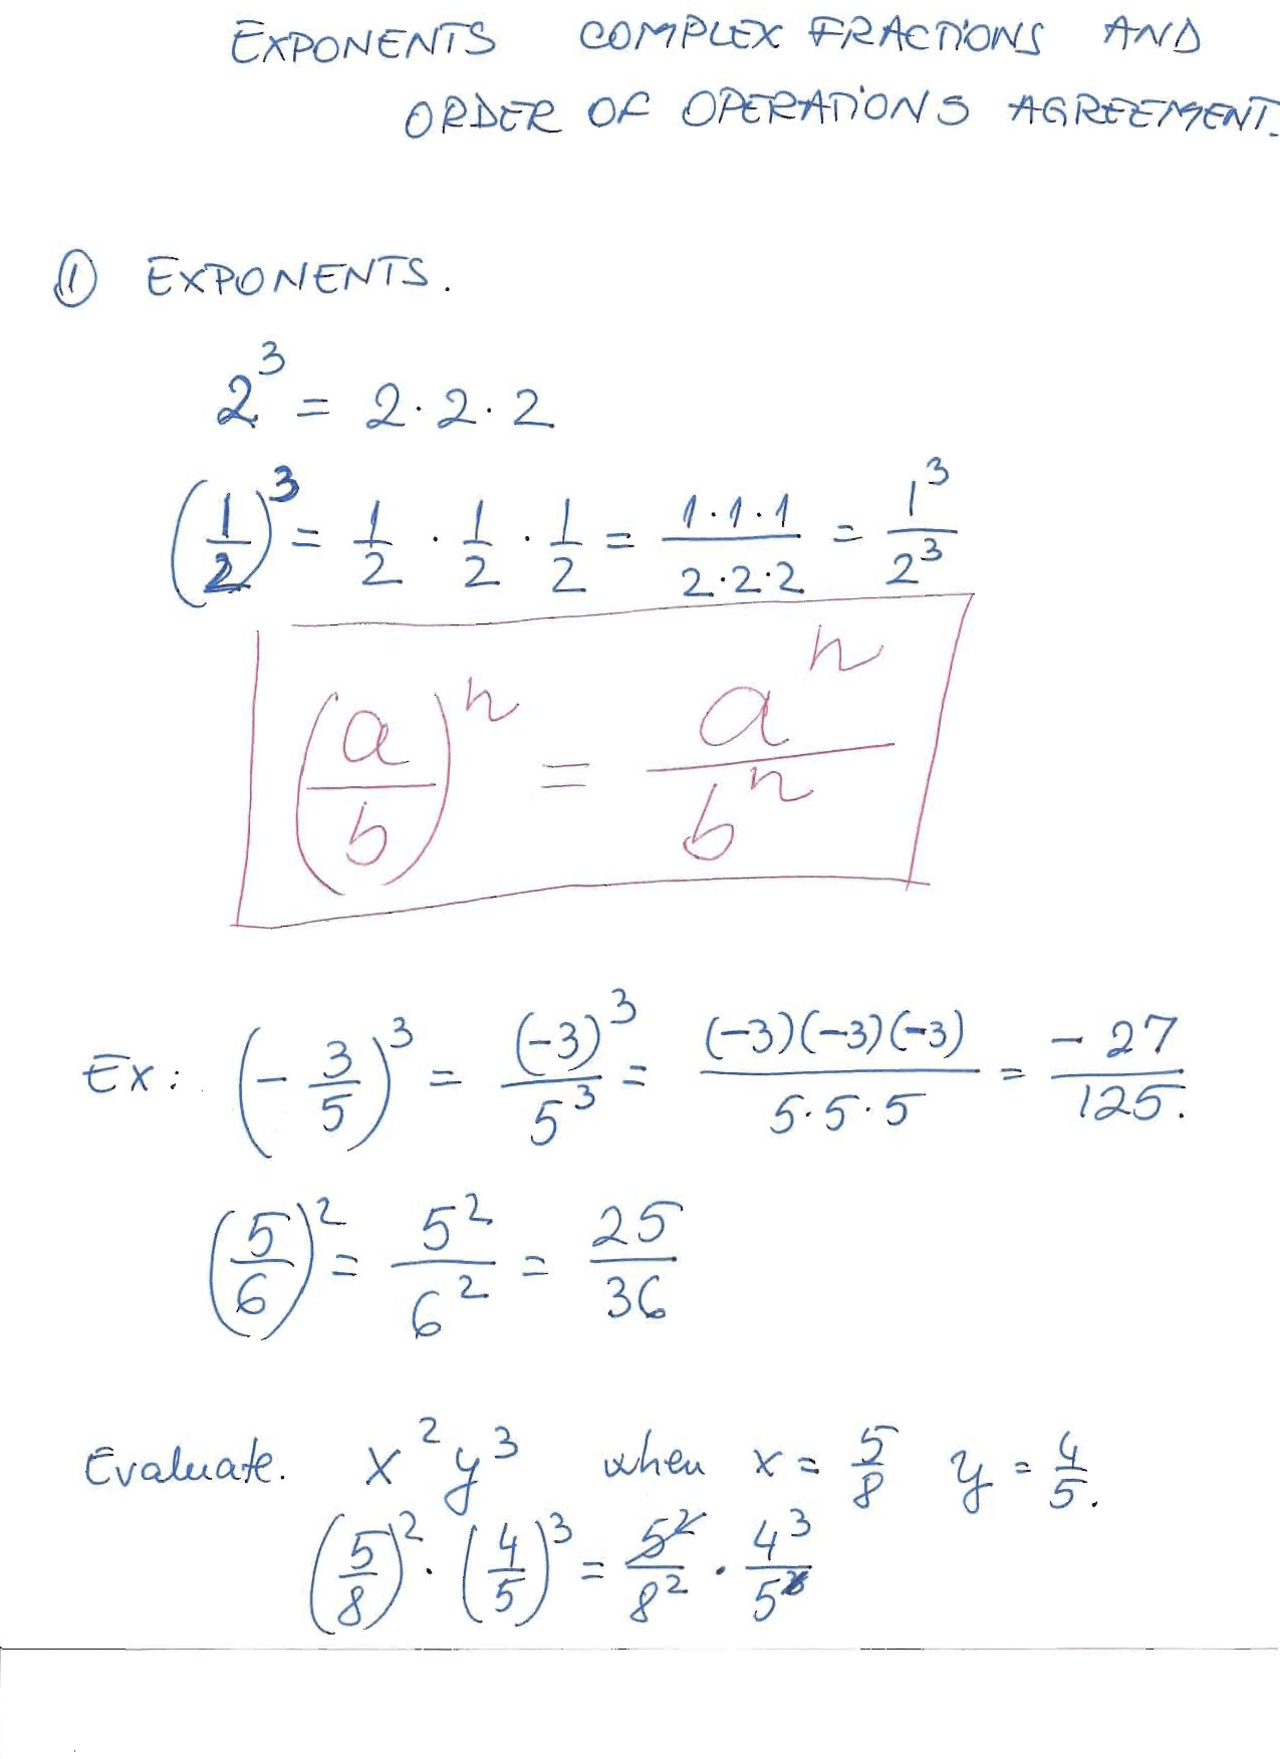 EXPONENTS COMPLEX FRACTIONS AND
ORDER OF OPERATIONS AGREEMENT.
① EXPONENTS.
2^3 = 2·2·2
(1/2)^3 = 1/2 · 1/2 · 1/2 = (1·1·1)/(2·2·2) = 1^3/2^3
(a/b)^n = a^n/b^n
Ex: (-3/5)^3 = (-3)^3/5^3 = (-3)(-3)(-3)/(5·5·5) = -27/125.
(5/6)^2 = 5^2/6^2 = 25/36
Evaluate. x^2 y^3 when x = 5/8 y = 4/5.
(5/8)^2 · (4/5)^3 = 5^2/8^2 · 4^3/5